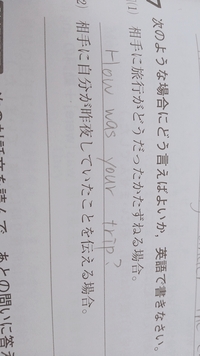 7 次のような場合にどう言えばよいか，英語で書きなさい。
(1) 相手に旅行がどうだったかたずねる場合。
How was your trip?
2) 相手に自分が昨夜していたことを伝える場合。
の対話文を読んで，あとの問いに答え